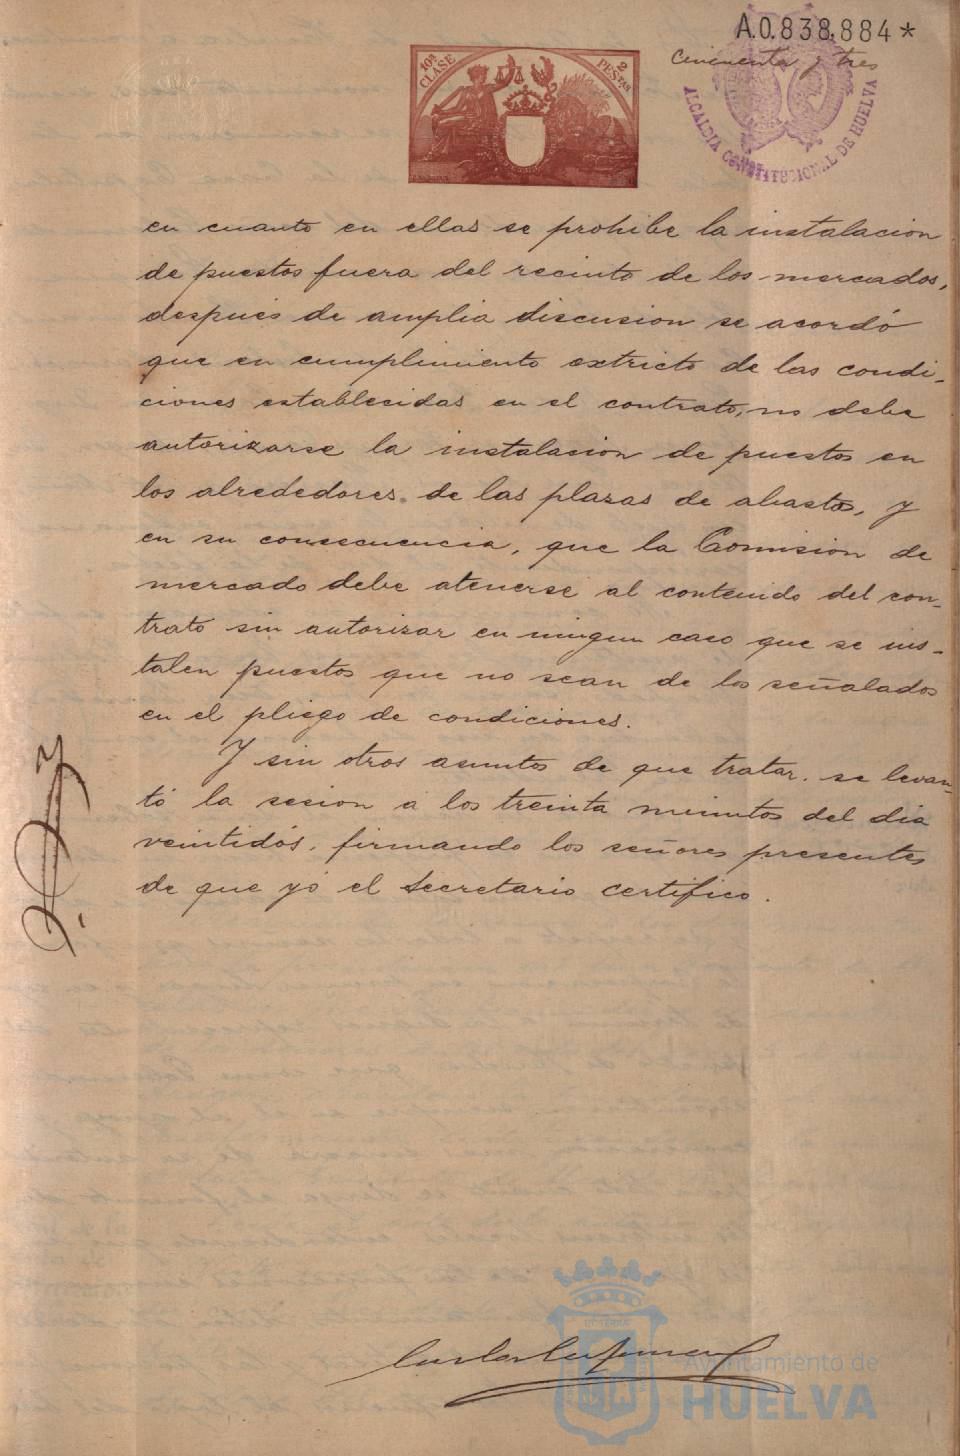 A.0.838.884*
cincuenta y tres
10ª CLASE
2 PESTAS
ALCALDIA CONSTITUCIONAL DE HUELVA
en cuanto en ellas se prohibe la instalacion
de puestos fuera del recinto de los mercados,
despues de amplia discusion se acordó
que en cumplimiento extricto de las condi-
ciones establecidas en el contrato, no debe
autorizarse la instalacion de puestos en
los alrededores de las plazas de abastos, y
en su consecuencia, que la Comision de
mercado debe atenerse al contenido del con-
trato sin autorizar en ningun caso que se ins-
talen puestos que no sean de los señalados
en el pliego de condiciones.
Y sin otros asuntos de que tratar. se levan-
tó la sesion a los treinta minutos del dia
veintidós. firmando los señores presentes
de que yó el Secretario certifico.
Ayuntamiento de
HUELVA